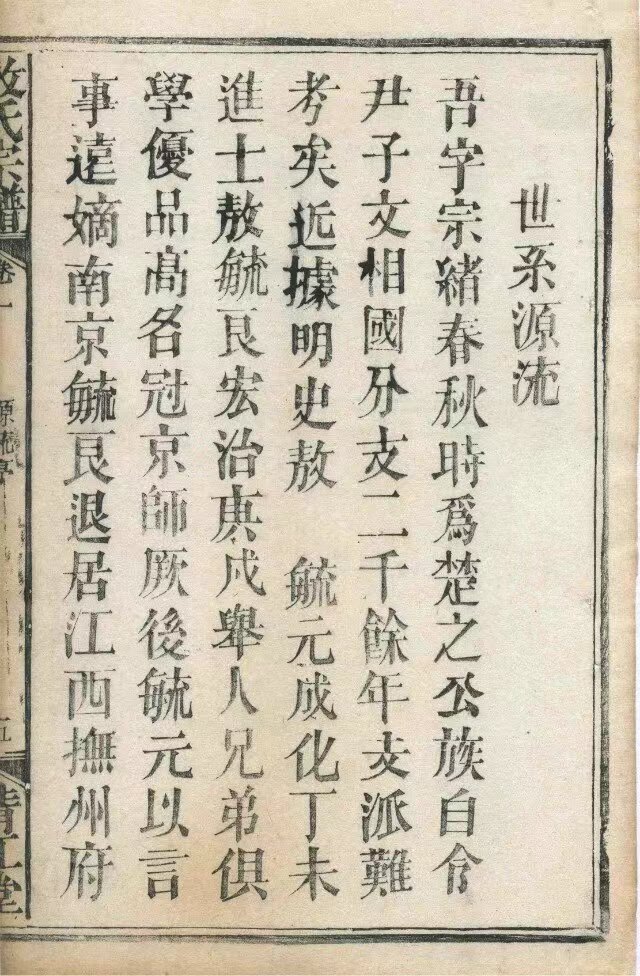 世系源流
吾字宗緒春秋時爲楚之公族自令
尹子文相國分支二千餘年支派難
考矣近據明史敖 毓元成化丁未
進士敖毓良宏治庚戌舉人兄弟俱
學優品高名冠京師厥後毓元以言
事遠嫡南京毓良退居江西撫州府
敖氏宗譜 卷一 源流序 五